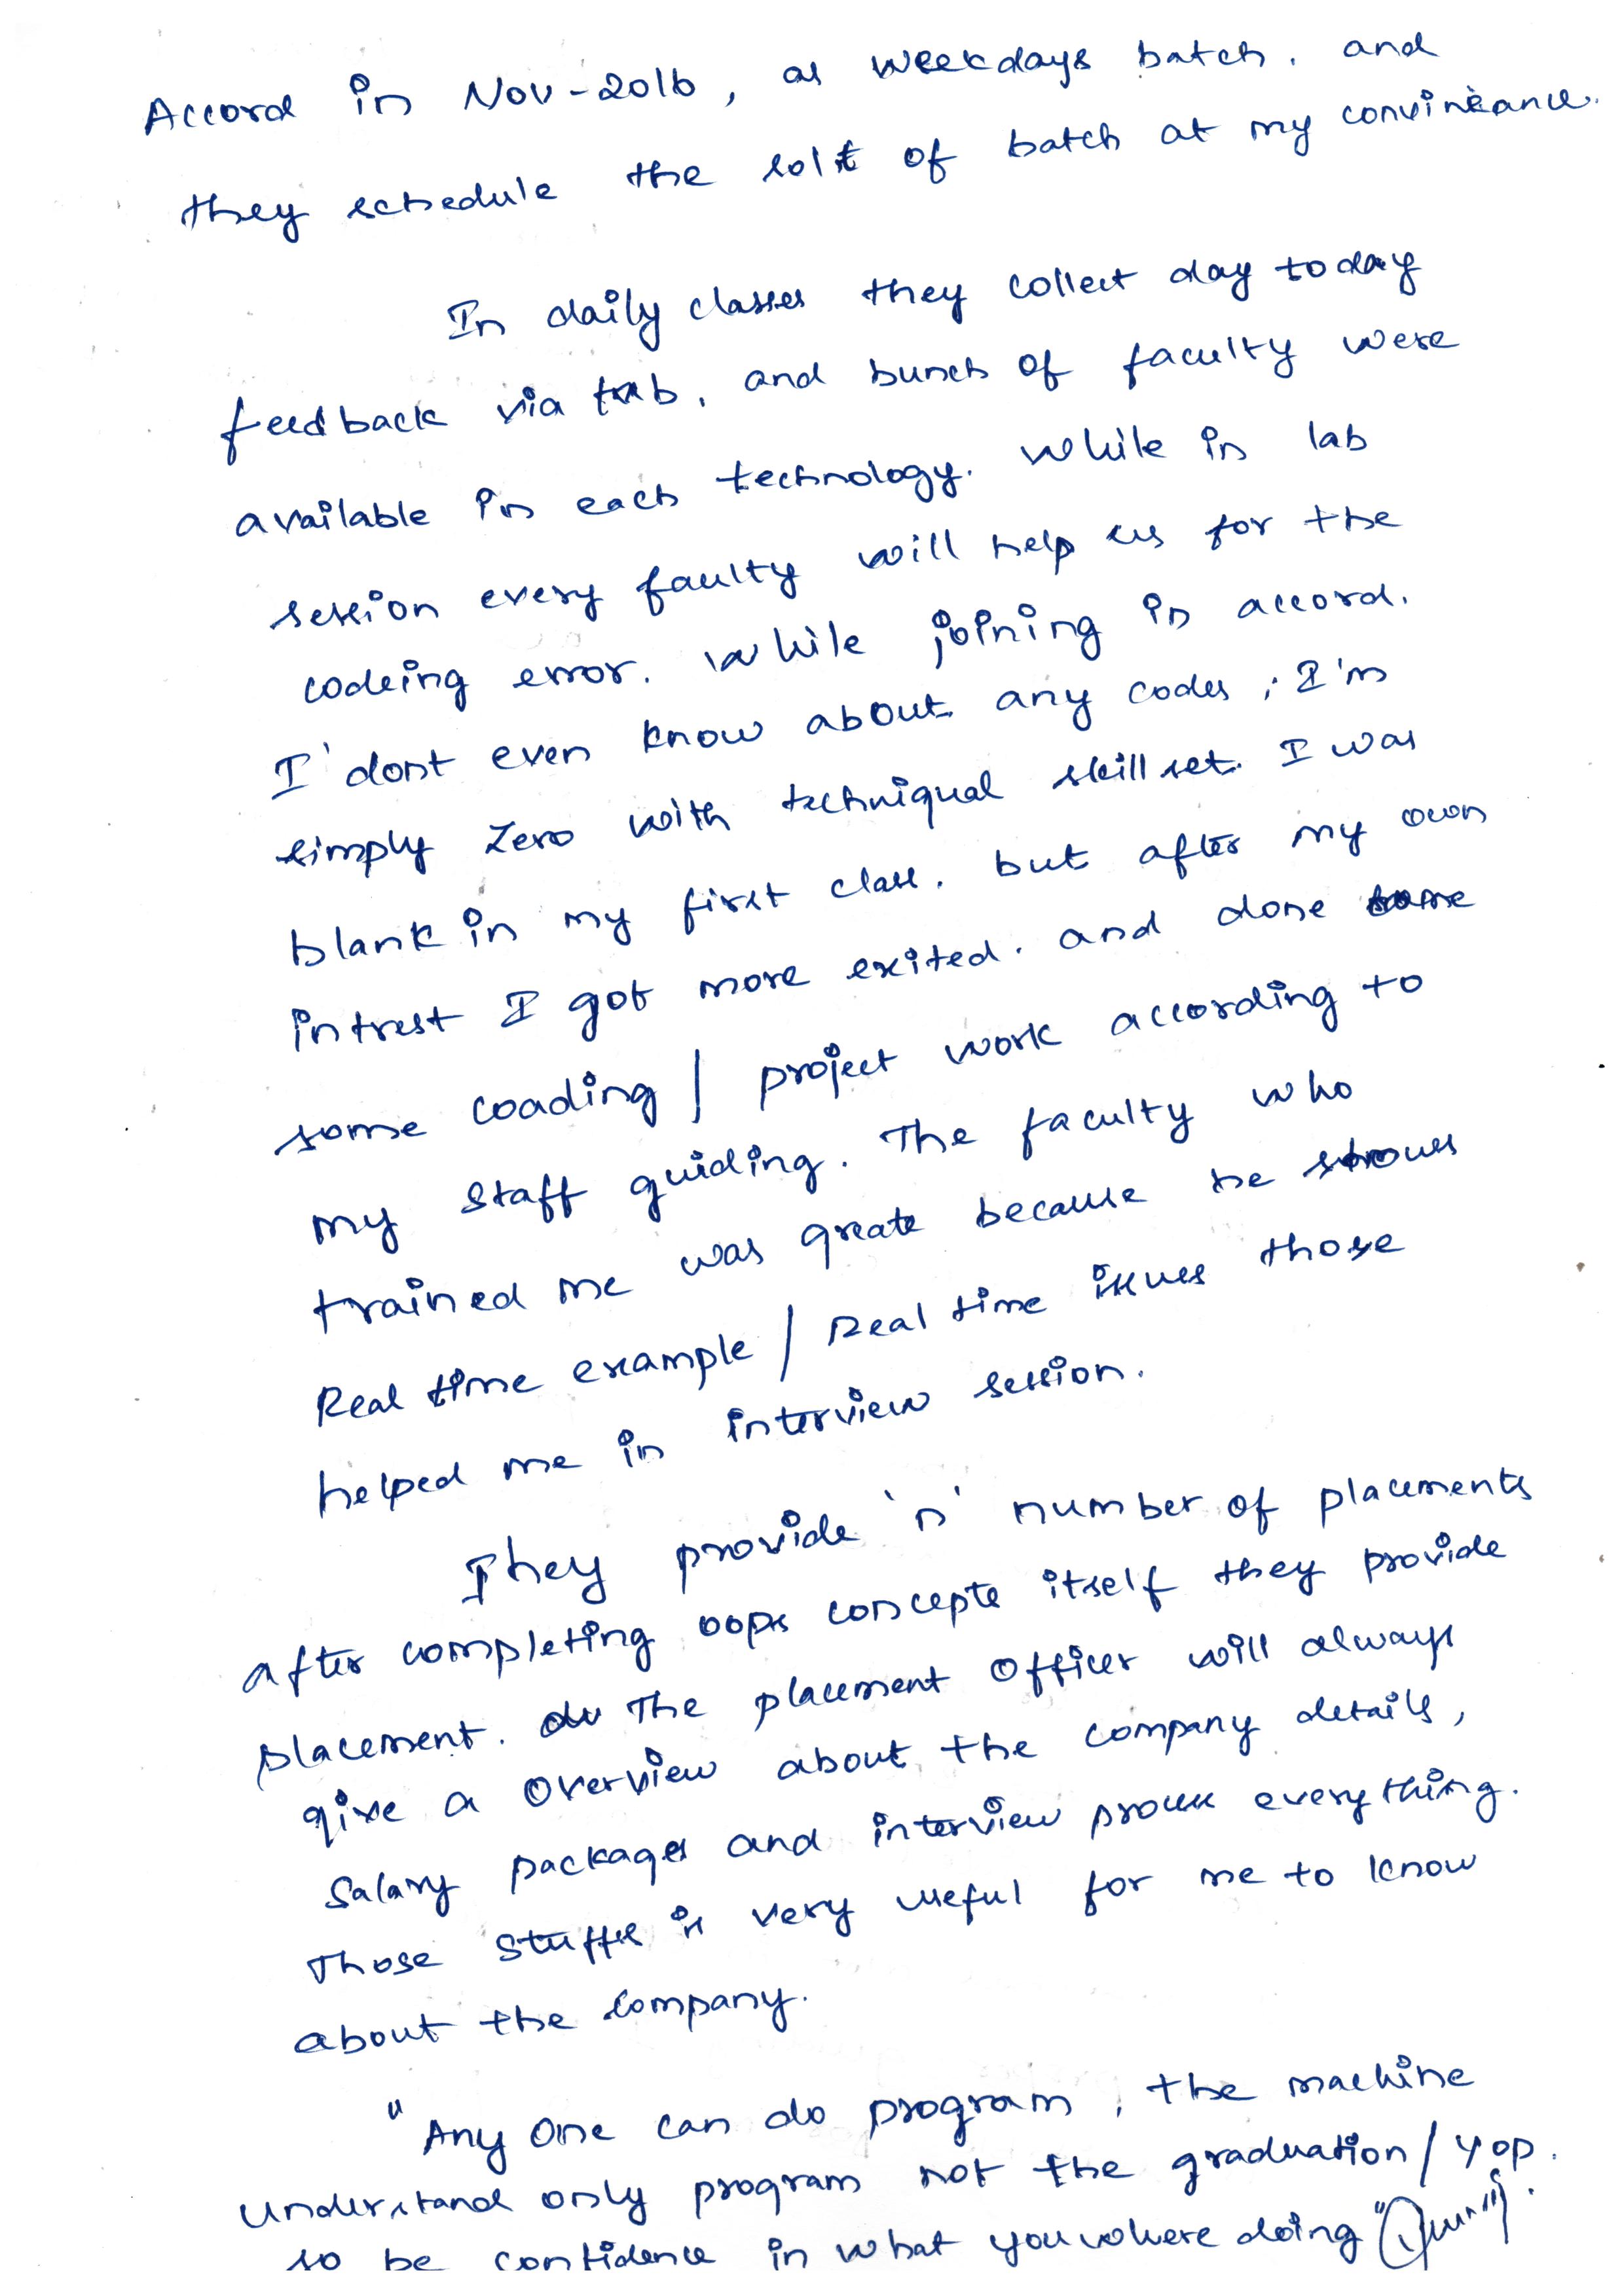 Accord in Nov-2016, as weekdays batch, and
they schedule the solt of batch at my convineance.
In daily classes they collect day today
feedback via tab, and bunch of faculty were
available in each technology. While in lab
session every faulty will help us for the
codeing error. While joining in accord.
I'dont even know about any codes, I'm
simply Zero with techniqual skill set. I was
blank in my first class. but after my own
intrest I got more exited. and done some
some coading / project work according to
my staff guiding. The faculty who
trained me was greate because he shows
Real time example / Real time issues those
helped me in interview session.
They provide 'n' number of placements
after completing oops concepts itself they provide
placement. The placement Officer will always
give a Overview about the company details,
Salary packages and interview process everything.
Those stuffs is very useful for me to know
about the company.
"Any One can do program, the machine
understand only program not the graduation / yop.
so be confidence in what you where doing"